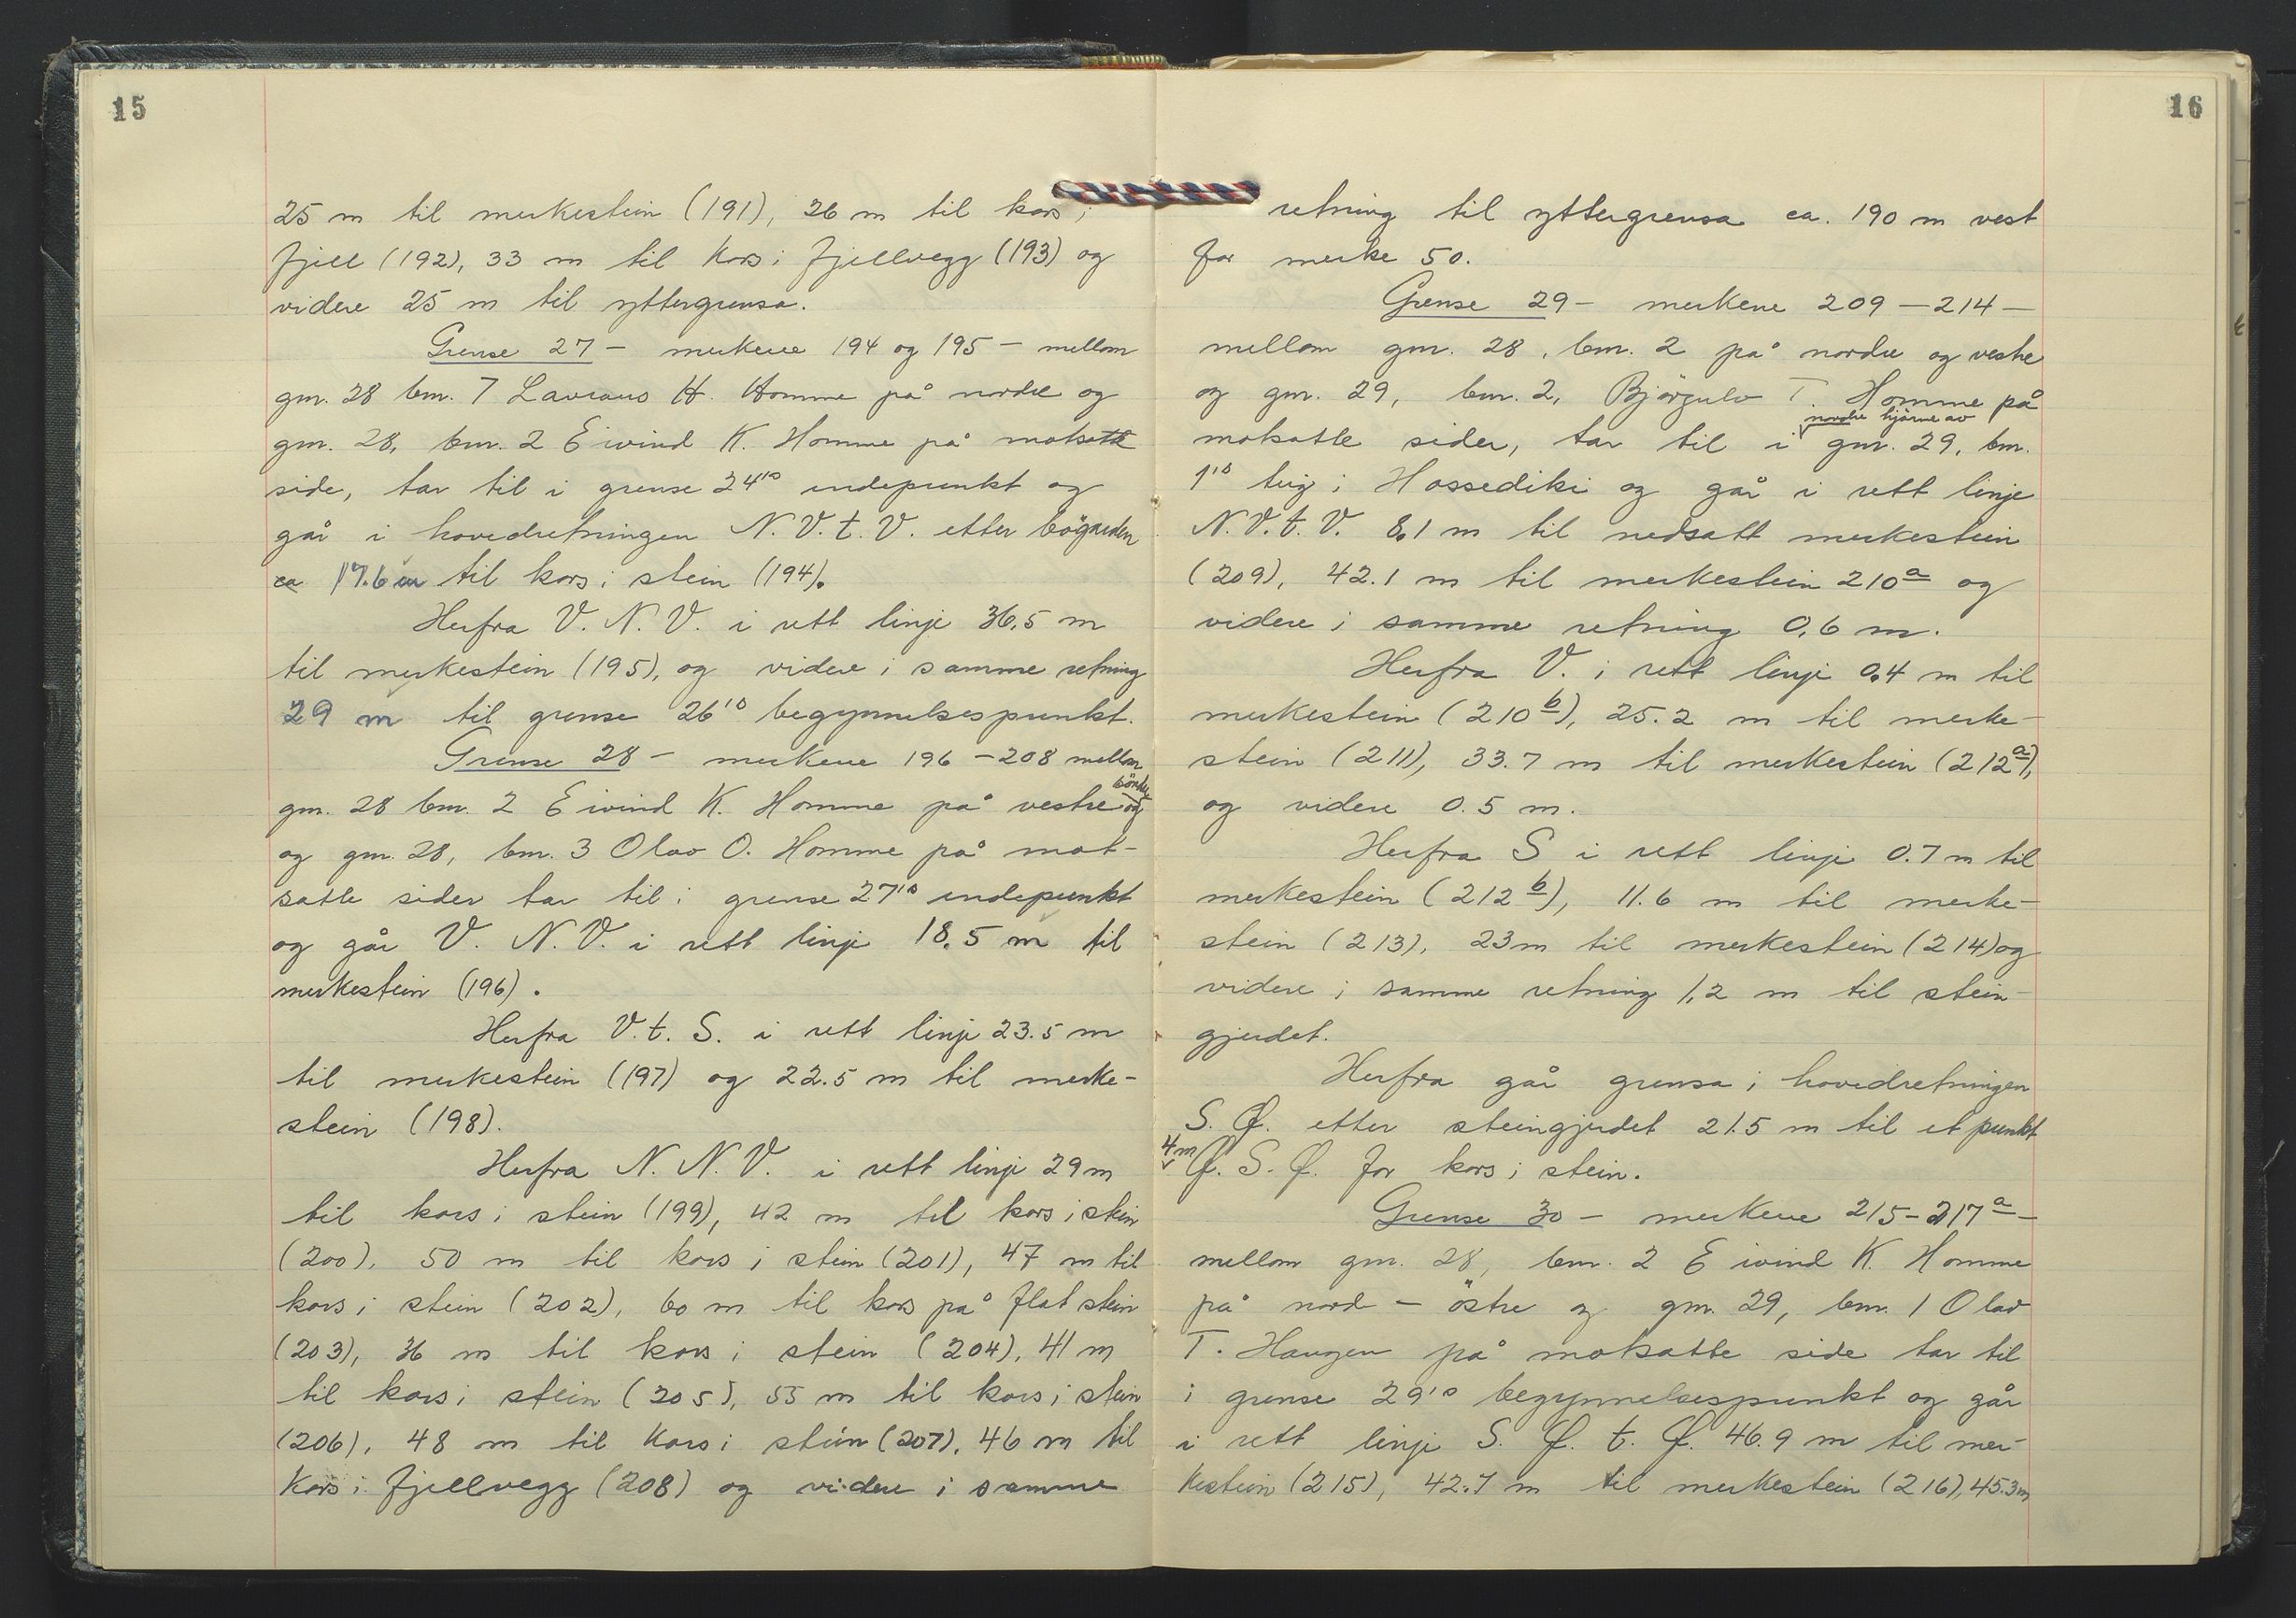 15
25 m til merkestein (191), 26 m til kors i
fjell (192), 33 m til kors i fjellvegg (193) og
videre 25 m til yttergrensa.
Grense 27 - merkene 194 og 195 - mellom
gnr. 28 bnr. 7 Lavrans H. Homme på nordre og
gnr. 28, bnr. 2 Eivind K. Homme på motsatte
side, tar til i grense 24's endepunkt og
går i hovedretningen N.V.t.V. etter bögarden
ca 17.6 m til kors i stein (194).
Herfra V.N.V. i rett linje 36,5 m
til merkestein (195), og videre i samme retning
29 m til grense 26's begynnelsespunkt.
Grense 28 - merkene 196 - 208 mellom
gnr. 28 bnr. 2 Eivind K. Homme på vestre og
og gnr. 28, bnr. 3 Olav O. Homme på mot-
satte sider tar til i grense 27's endepunkt
og går V. N.V. i rett linje 18.5 m til
merkestein (196).
Herfra V.t. S. i rett linje 23.5 m
til merkestein (197) og 22.5 m til merke-
stein (198).
Herfra N.N.V. i rett linje 29 m
til kors i stein (199), 42 m til kors i stein
(200), 50 m til kors i stein (201), 47 m til
kors i stein (202), 60 m til kors på flat stein
(203), 36 m til kors i stein (204), 41 m
til kors i stein (205), 55 m til kors i stein
(206), 48 m til kors i stein (207), 46 m til
kors i fjellvegg (208) og videre i samme
16
retning til yttergrensa ca. 190 m vest
for merke 50.
Grense 29 - merkene 209 - 214 -
mellom gnr. 28, bnr. 2 på nordre og vestre
og gnr. 29, bnr. 2, Björgulv T. Homme på
nordre hjörne av
motsatte sider, tar til i gnr. 29, bnr.
1's teig i Hossediki og går i rett linje
N.V.t.V. 8,1 m til nedsatt merkestein
(209), 42.1 m til merkestein 210a og
videre i samme retning 0,6 m.
Herfra V. i rett linje 0,4 m til
merkestein (210b), 25.2 m til merke-
stein (211), 33.7 m til merkestein (212a),
og videre 0.5 m.
Herfra S i rett linje 0.7 m til
merkestein (212b), 11.6 m til merke-
stein (213), 23 m til merkestein (214) og
videre i samme retning 1,2 m til stein-
gjerdet.
Herfra går grensa i hovedretningen
S.Ø. etter steingjerdet 21.5 m til et punkt
4 m Ø.S.Ø. for kors i stein.
Grense 30 - merkene 215 - 217a -
mellom gnr. 28, bnr. 2 Eivind K. Homme
på nord - östre og gnr. 29, bnr. 1 Olav
T. Haugen på motsatte side tar til
i grense 29's begynnelsespunkt og går
i rett linje S.Ø.t.Ø. 46.9 m til mer-
kestein (215), 42.7 m til merkestein (216), 45.3 m